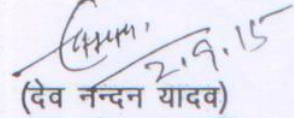 2.9.15
(देव नन्दन यादव)